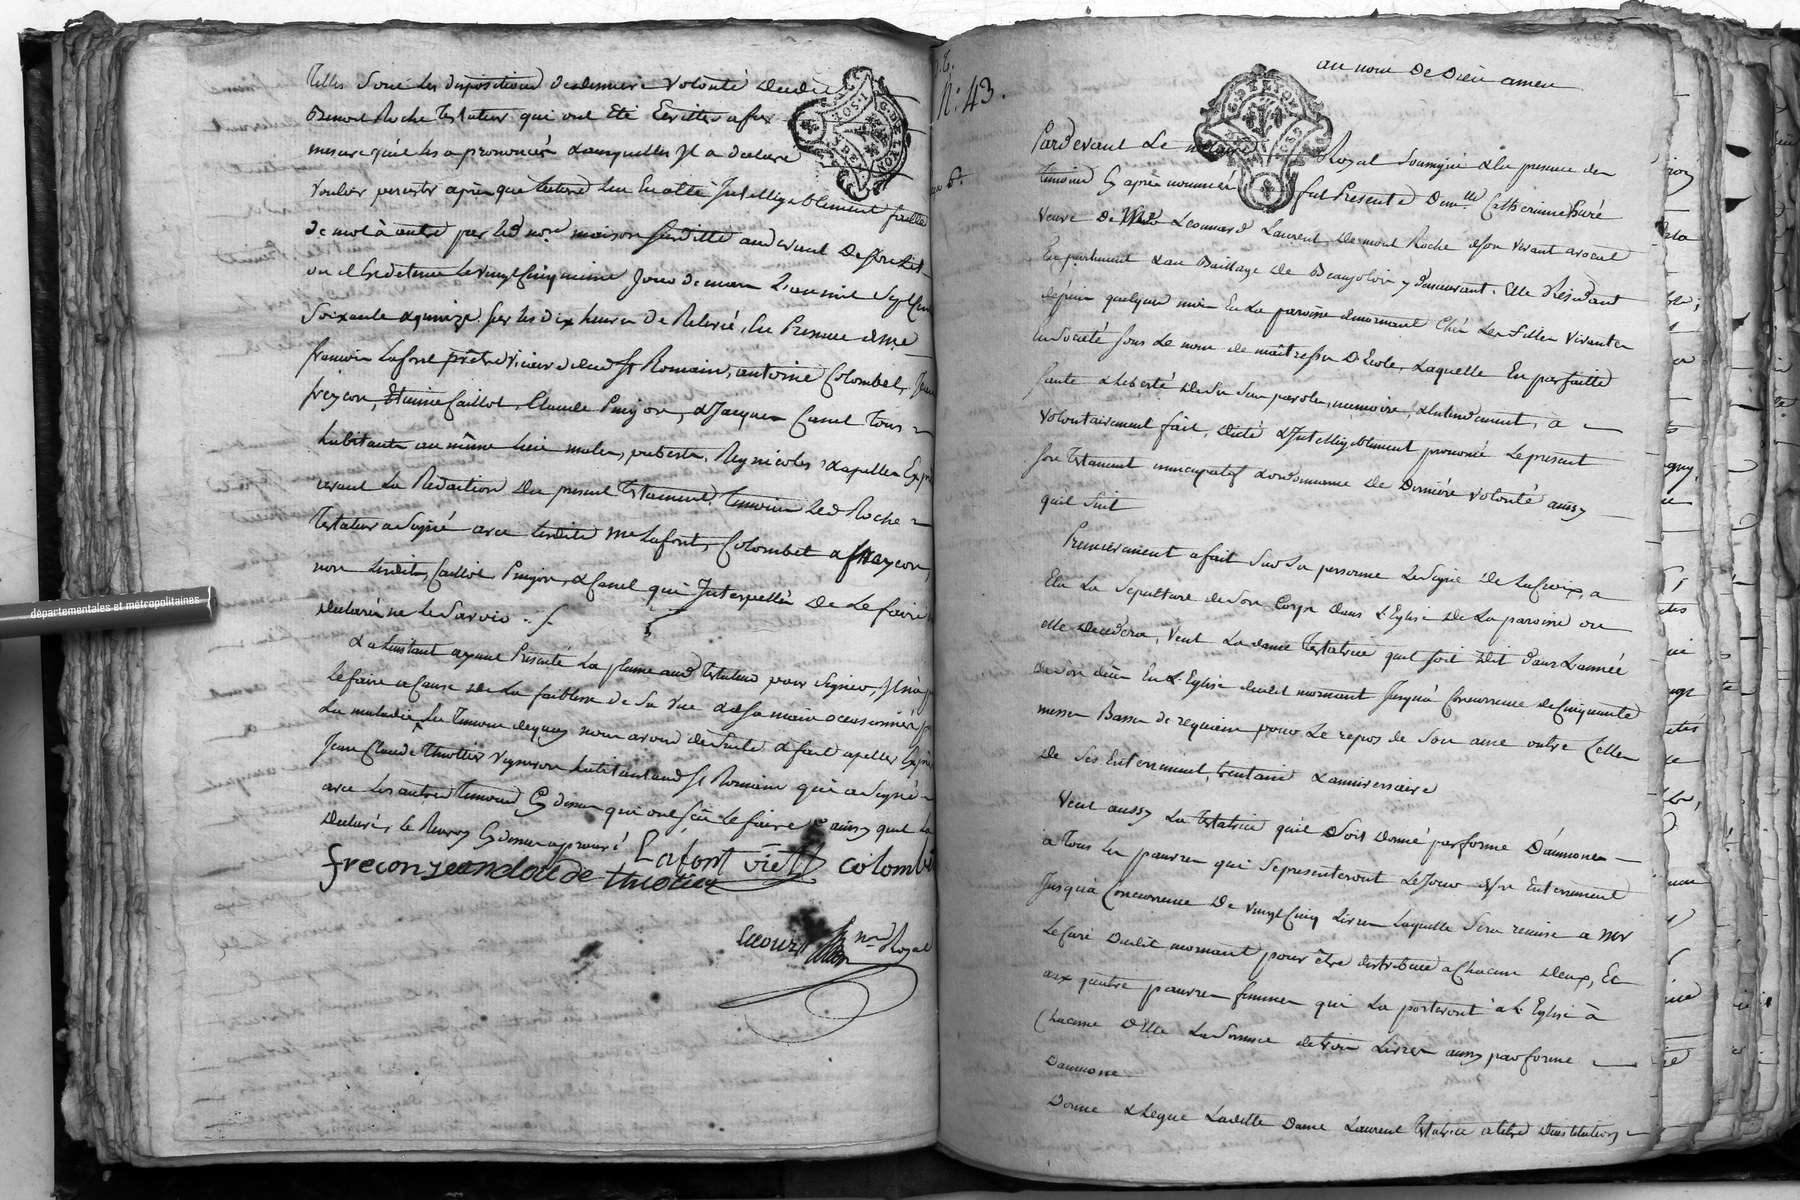 Telles Sont les dispositions de derniere volonté dudit
Benoit Roche testateur qui ont Eté Ecrittes a fur
mesure quil les a prononcées auxquelles Il a declaré
vouloir persister apres que lecture luy En a été Intelligiblement faitte
de mot à autre par led. nore maison susditte au devant de son Lit
ou il Est detenu le vingt Cinquieme Jour de mars L'an mil Sept Cent
Soixante quinze sur les dix heures de Relevé, En Presence de me
françois Lafont prêtre vicaire dud St Romain, antoine Colombet, Jean
freycon, Etienne Caillot, Claude Pinjon, & Jacques Canel Tous
habitants au même lieu males, puberes, Regnicoles & apellés Exprès
avant La Redaction du present Testament. Temoins Led Roche
Testateur a Signé avec lesdits me Lafont, Colombet & freycon,
non lesdits Caillot Pinjon, & Canel qui Interpellés De Le faire
declaré ne le Savoir ./.
& a L'instant ayant Presenté La plume aud Testateur pour Signer, Il n'a pû
le faire a Cause de La foiblesse de Sa vue & de Sa main occasionnées par
La maladie
Jean Claude Thiollier vigneron habitant aud St Romain qui a Signé
avec Les autres Temoins Cy dessus qui ont Sçu le faire & ainsy quil L'a
Declaré, le Renvoy Cy dessus aprouvé
Lafont vic
colombet
frecon jeandlaude thiolier
nre Royal
départementales et métropolitaines
N.° 43.
au nom De Dieu amen
G. DE LYON
Pardevant Le notaire Royal Soussigné & En presence des
temoins Cy après nommés fut Presente Demlle Catherine Buré
veuve De Mre Leonnard Laurent De mont Roche de son vivant avocat
En parlement & au Baillage de Beaujolois y demeurant. Elle Résidant
depuis quelques mois En La paroisse de mornant Chés Les filles vivantes
En Societé sous le nom de maitresses D'Ecole, Laquelle En parfaitte
santé & liberté de ses Sens parole, memoire, & Entendement, a
volontairement fait, dicté & Intelligiblement prononcé Le present
son testament nuncupatif & ordonnance De Dernière volonté ainsy
quil Suit
Premierement a fait Sur Sa personne Le Signe De La Croix, a
Elu La Sepulture de Son Corps dans L'Eglise De La paroisse ou
elle decedera, veut La dame testatrice quil soit Dit dans L'année
de son décès En L'Eglise dudit mornant Jusqu'à Concurrence de Cinquante
messes Basses de requiem pour Le repos de Son ame outre Celles
de Ses Enterrement, trentain & anniversaire
Veut aussy La testatrice quil Soit Donné par forme D'aumones
a Tous Les pauvres qui Se presenteront Le Jour de son Enterrement
Jusqu'à Concurrence De vingt Cinq Livres Laquelle Sera remise a Mr
Le Curé Dudit mornant pour être distribuée a Chacun d'eux, Et
aux quatre pauvres femmes qui La porteront à L'Eglise à
Chacune D'Elles La Somme de trois Livres aussy par forme
D'aumone
Donne & Legue Laditte Dame Laurent testatrice a titre D'institution